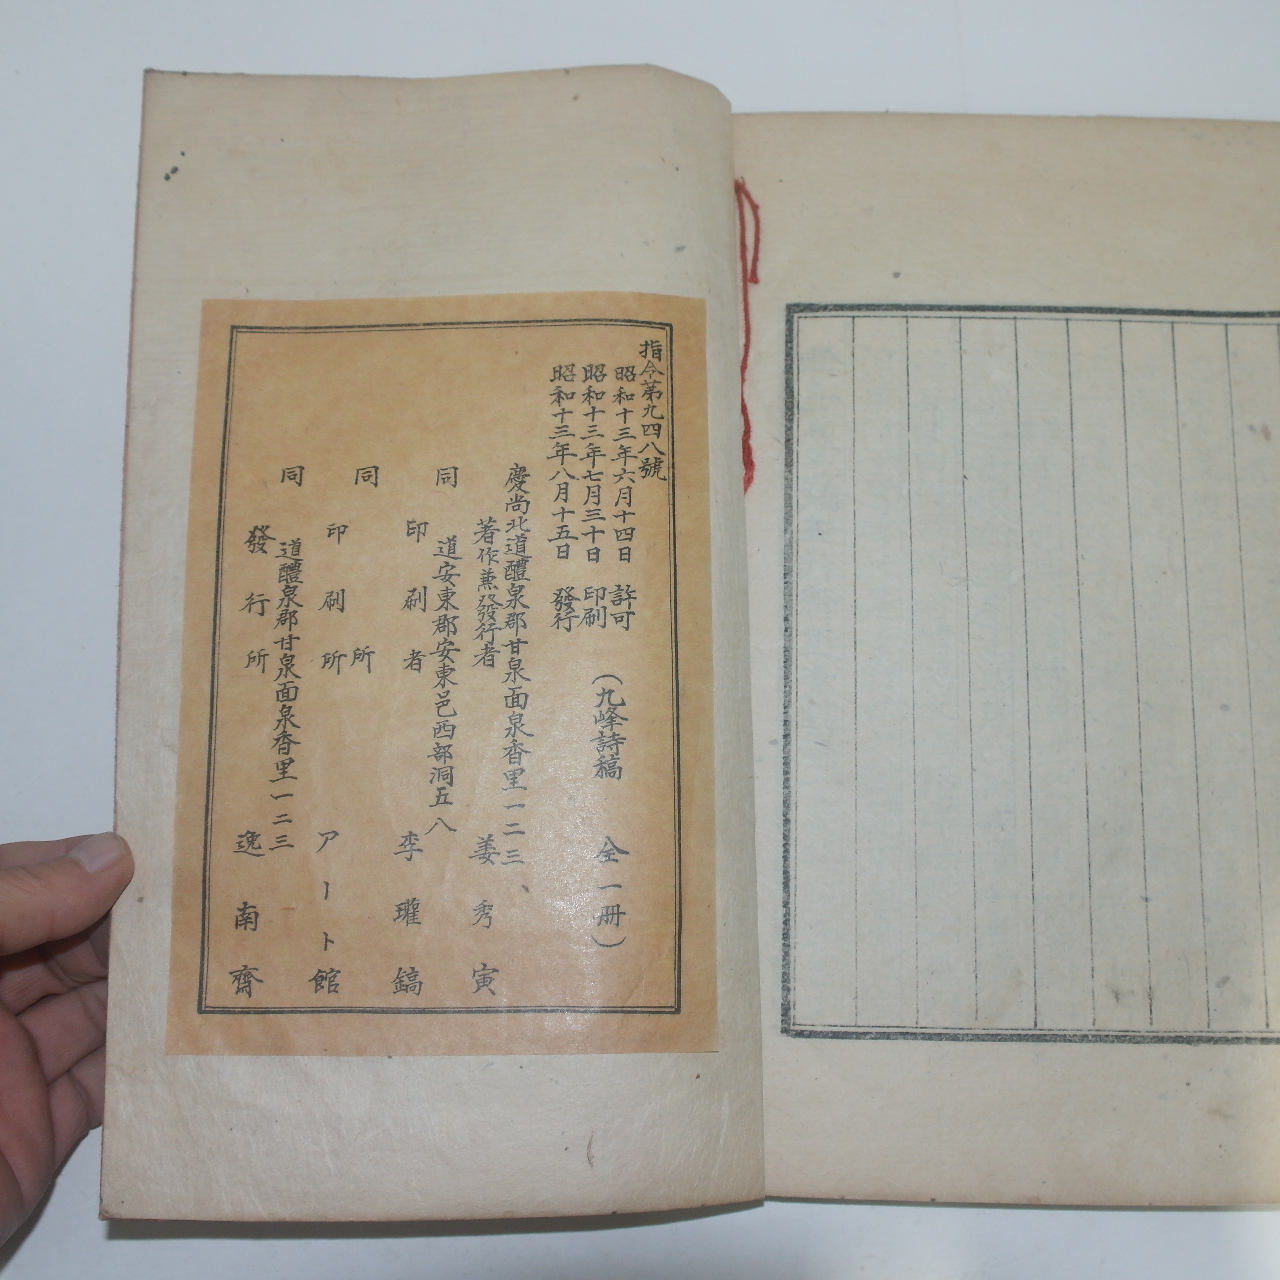 指令第九四八號
昭和十三年六月十四日 許可
昭和十三年七月三十日 印刷 (九峰詩稿 全一冊)
昭和十三年八月十五日 發行
慶尚北道醴泉郡甘泉面泉香里一二三、
著作兼發行者 姜秀寅
同 道安東郡安東邑西部洞五八
印刷者 李瓘鎬
同 所
印刷所 アート館
同 道醴泉郡甘泉面泉香里一二三
發行所 逸南齋